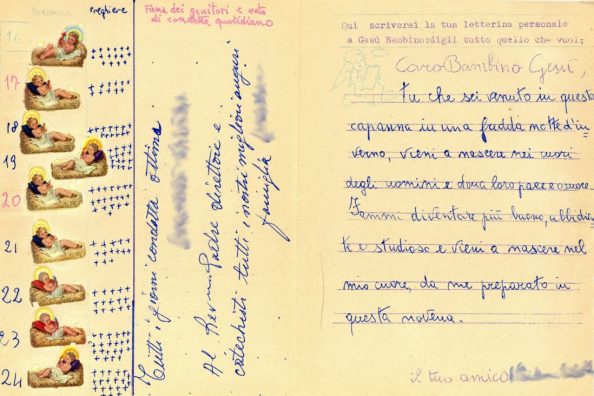 Presenza
Preghiere
16
17
18
19
20
21
22
23
24
Firma dei genitori e voto
di condotta quotidiano
Tutti i giorni condotta ottima
Al Rev. Padre direttore e
catechisti tutti i nostri migliori auguri
famiglia
Qui scriverai la tua letterina personale
a Gesú Bambino: digli tutto quello che vuoi;
Caro Bambino Gesú,
Tu che sei venuto in questa
capanna in una fredda notte d'in
verno, vieni a nascere nei cuori
degli uomini e dona loro pace e amore.
Fammi diventare più buono, ubbidien
te e studioso e vieni a nascere nel
mio cuore, da me preparato in
questa novena.
il tuo amico